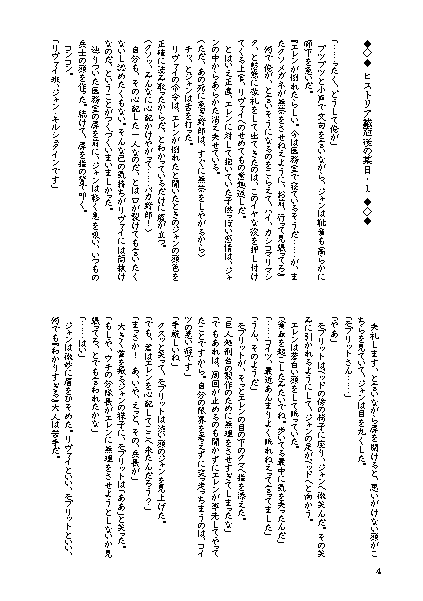 ◆◇◆ ヒストリア戴冠後の某日・1 ◆◇◆
「……ったく、どうして俺が」
ブツブツと小声で文句を言いながら、ジャンは靴音も高らかに
廊下を歩いた。
『エレンが倒れたらしい。今は医務室で寝ているそうだ……が、ま
たクソメガネが無茶させねぇように、お前、行って見張ってろ』
何で俺が、と言いそうになるのをこらえて、ハイ、カシコマリマシ
タ、と慇懃に敬礼をして出てきたのは、このイヤな役を押し付け
てくる上官、リヴァイへのせめてもの意趣返しだ。
とはいえ正直、エレンに対して抱いていた子供っぽい感情は、ジャ
ンの中からあらかた消え失せている。
（ただ、あの死に急ぎ野郎は、すぐに無茶をしやがるから）
チッ、とジャンは舌を打った。
リヴァイの命令は、エレンが倒れたと聞いたときのジャンの顔色を
正確に読み取ったからだ、とわかっているだけに腹が立つ。
（クソッ、みんなに心配かけやがって……バカ野郎！）
自分も、その心配した一人なのだ、とは口が裂けても言いたく
ないし認めたくもない。そんな己の気持ちがリヴァイには筒抜け
なのだ、ということがムカついてしまいました。
辿りついた医務室の扉を前に、ジャンは軽く息を吸い、いつもの
兵士の顔を作った。続けて、扉を指の背で叩く。
コンコン。
「リヴァイ班、ジャン・キルシュタインです」
失礼します、と言いながら扉を開けると、思いがけない顔がこ
ちらを見ていて、ジャンは目を丸くした。
「やあ」
「モブリットさん……」
モブリットはベッドの脇の椅子に座り、ジャンへ微笑んだ。その笑
みに引かれるようにして、ジャンの足がベッドへと向かう。
エレンは蒼白い顔をして眠っていた。
「貧血を起こしたみたいでね。歩いてる最中に気を失ったんだ」
「……コイツ、最近あんまりよく眠れねえって言ってました」
「うん、そのようだ」
モブリットが、そっとエレンの目の下のクマへ指を添えた。
「巨人処刑台の製作のために無理をさせすぎてしまったな」
「でもあれは、周囲が止めるのも聞かずにエレンが率先してやって
たことですから。自分の限界を考えずに突っ走っちまうのは、コイ
ツの悪い癖です」
「手厳しいね」
クスッと笑って、モブリットは渋い顔のジャンを見上げた。
「でも、君はエレンを心配してここへ来たんだろう？」
「まっさか！ あ、いや、えっと、その、兵長が」
大きく首を振るジャンの様子に、モブリットは「ああ」と笑った。
「もしや、ウチの分隊長がエレンに無理をさせようとしないか見
張ってろ、とでも言われたかな」
「……はい」
ジャンは微妙に眉をひそめた。リヴァイといい、モブリットといい、
何でも『わかりすぎる』大人は苦手だ。
4